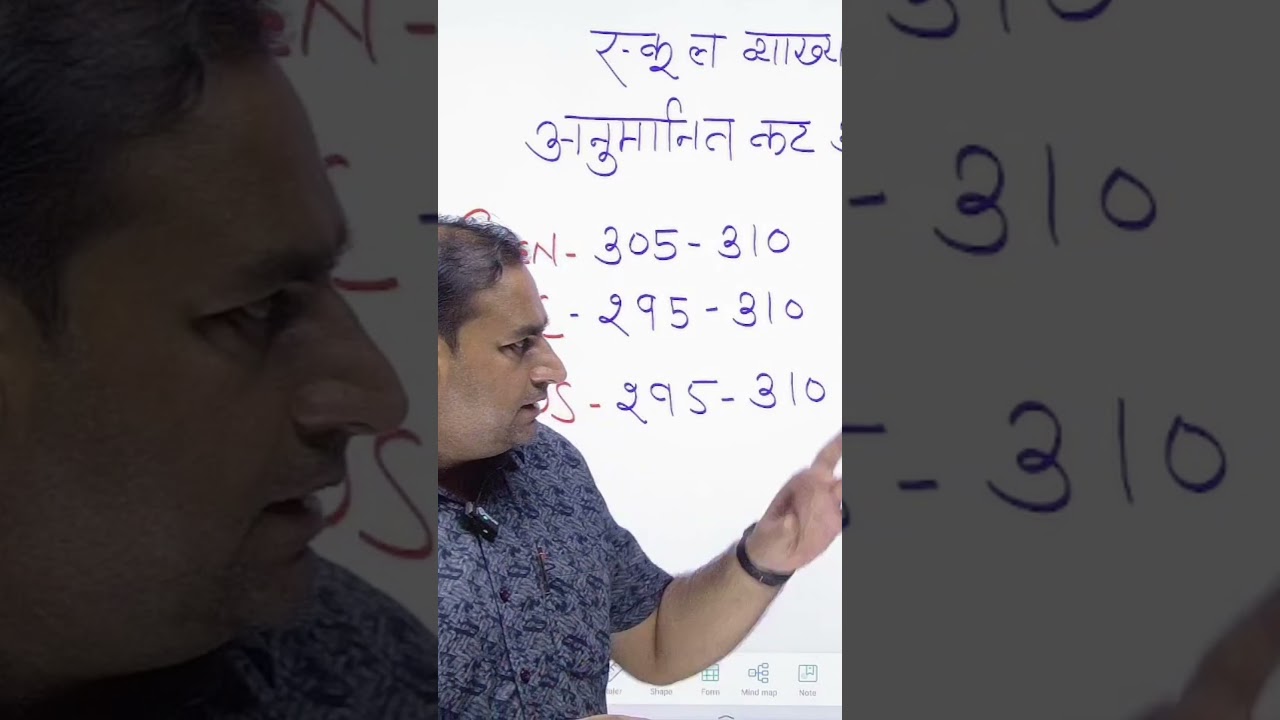 स्कूल
अनुमानित कट
EN - 305 - 310
- 295 - 310
S - 295 - 310
Shape Form Mind map Note